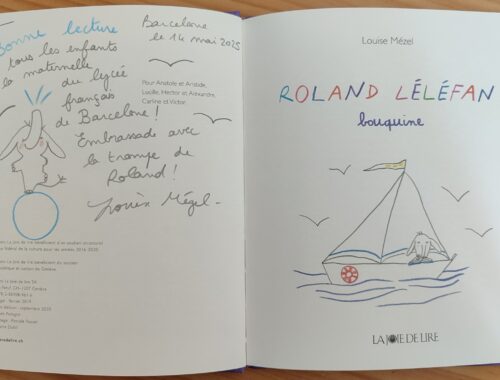 Bonne lecture
Barcelone
le 14 mai 2025
à tous les enfants
de la maternelle
du lycée
français
de Barcelone !
Embrassade avec
la trompe de
Roland !
Louise Mézel
Pour Aristote et Aristide,
Lucille, Hector et Alexandre,
Carline et Victor.
Louise Mézel
ROLAND LÉLÉFAN
bouquine
LA JOIE DE LIRE